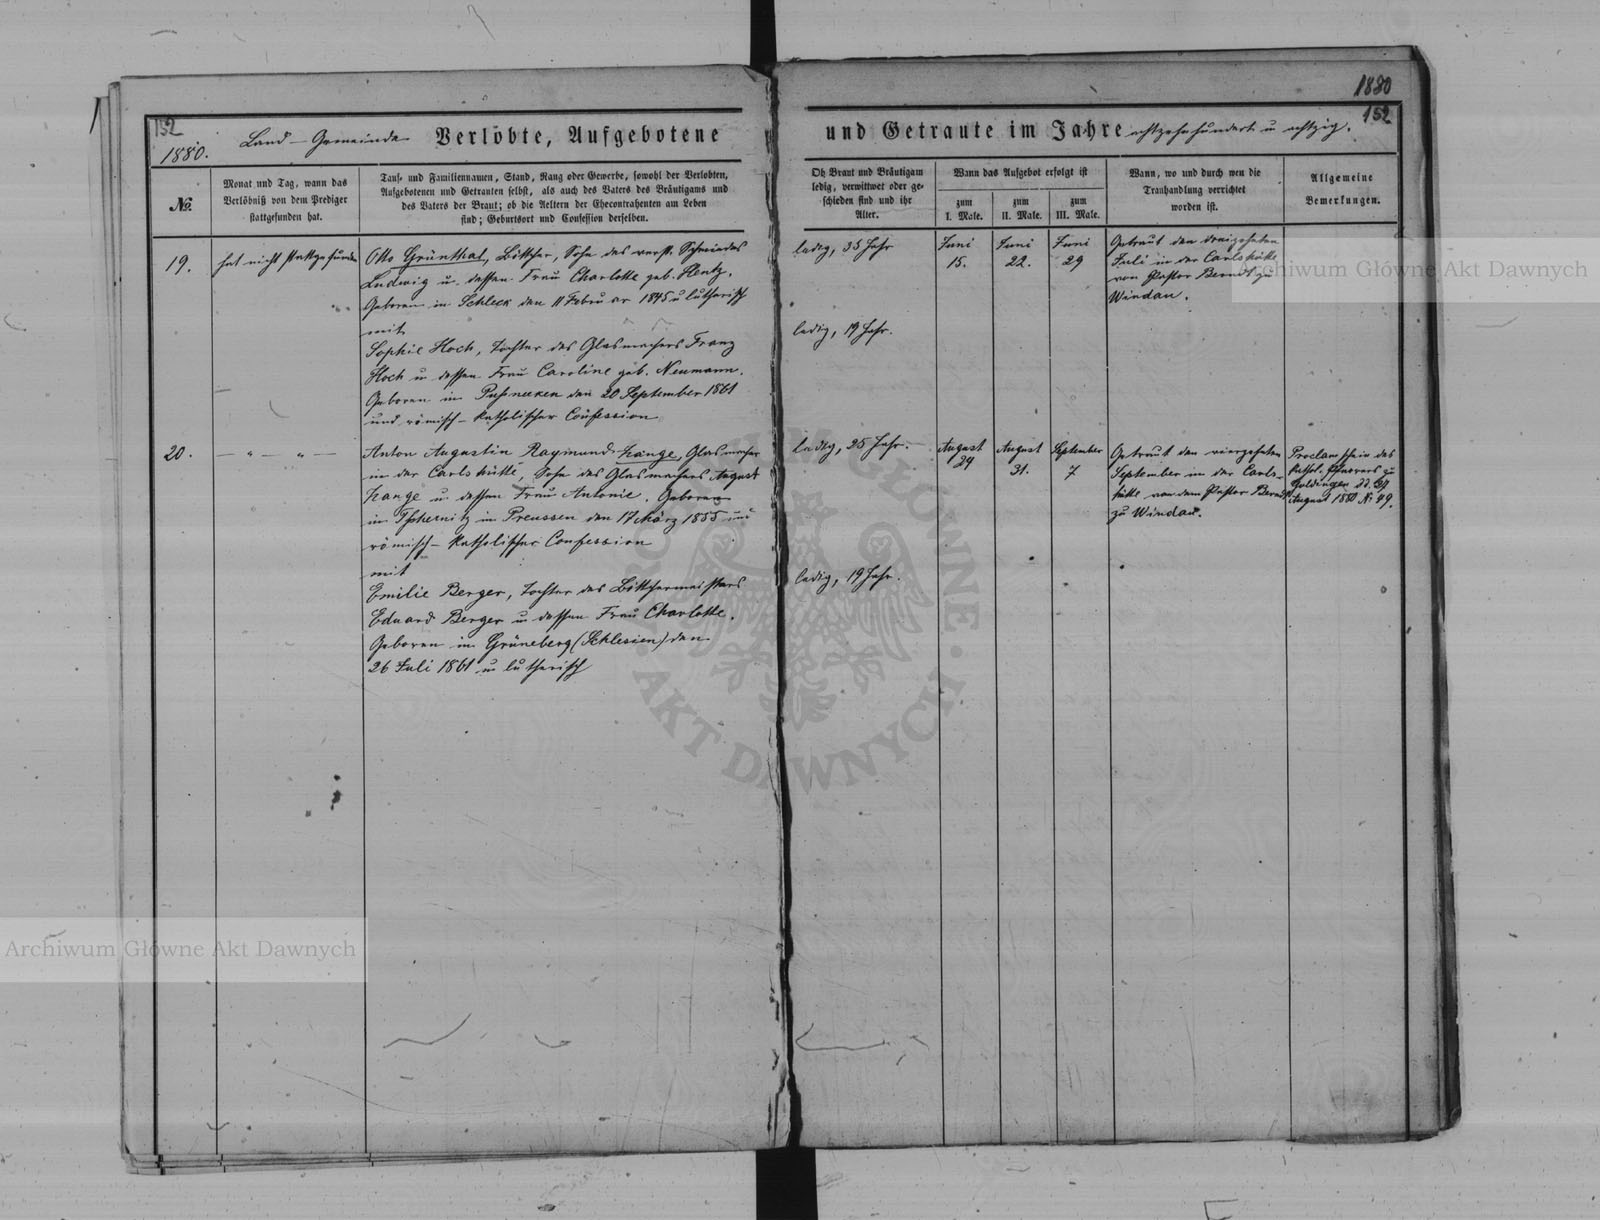 1880
152
152
1880.
Land-Gemeinde Verlobte, Aufgebotene
und Getraute im Jahre achtzehnhundert u achtzig.
№.
Monat und Tag, wann das
Verlöbniß von dem Prediger
stattgefunden hat.
Tauf- und Familiennamen, Stand, Rang oder Gewerbe, sowohl der Verlobten,
Aufgebotenen und Getrauten selbst, als auch des Vaters des Bräutigams und
des Vaters der Braut; ob die Aeltern der Ehecontrahenten am Leben
sind; Geburtsort und Confession derselben.
Ob Braut und Bräutigam
ledig, verwittwet oder ge-
schieden sind und ihr
Alter.
Wann das Aufgebot erfolgt ist
zum
I. Male.
zum
II. Male.
zum
III. Male.
Wann, wo und durch wen die
Trauhandlung verrichtet
worden ist.
Allgemeine
Bemerkungen.
19.
hat nicht stattgefunden
Otto Grünthal, Böttcher, Sohn des verst. Schmiedes
Ludwig u. dessen Frau Charlotte geb. Hentz.
Geboren in Schleck den 11 Februar 1845 u lutherisch
mit
Sophie Hoch, Tochter des Glasmachers Franz
Hoch u dessen Frau Caroline geb. Neumann.
Geboren in Pussneeken den 20 September 1861
und römisch-katholischer Confession
ledig, 35 Jahr
ledig, 19 Jahr.
Juni
15.
Juni
22.
Juni
29
Getraut den dreizehnten
Juli in der Carlshütte
von Pastor Berndt zu
Windau.
20.
— " — " —
Anton Augustin Raymund Zange, Glasmacher
in der Carlshütte, Sohn des Glasmachers August
Zange u dessen Frau Antonie. Geboren
in Tschernitz in Preussen den 17 März 1855 und
römisch-katholischer Confession
mit
Emilie Berger, Tochter des Böttchermeisters
Eduard Berger u dessen Frau Charlotte.
Geboren in Grüneberg (Schlesien) den
26 Juli 1861 u lutherisch
ledig, 25 Jahr.
ledig, 19 Jahr.
August
24
August
31.
September
7
Getraut den vierzehnten
September in der Carls-
hütte von dem Pastor Berndt
zu Windau.
Proclamschein des
kathol. Pfarrers zu
Goldingen dd.
August 1880 № 49.
Archiwum Główne Akt Dawnych
Archiwum Główne Akt Dawnych
ARCHIWUM GŁÓWNE
AKT DAWNYCH